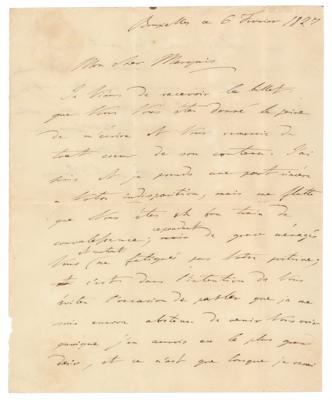 Bruxelles ce 6 Février 1827
Mon cher Marquis
Je viens de recevoir le billet
que Vous Vous êtes donné la peine
de m'écrire et Vous remercie de
tout cœur de son contenu. J'ai
pris et je prends une part sincère
a Votre indisposition, mais me flatte
que Vous êtes en bon train de
convalescence; cependant de grace ménagés
Vous
ne fatigués pas Votre poitrine;
c'est dans l'intention de Vous
éviter l'occasion de parler que je me
suis encore abstenu de venir Vous voir
quoique j'en aurois eu le plus grand
désir, et ce n'est que lorsque je serai